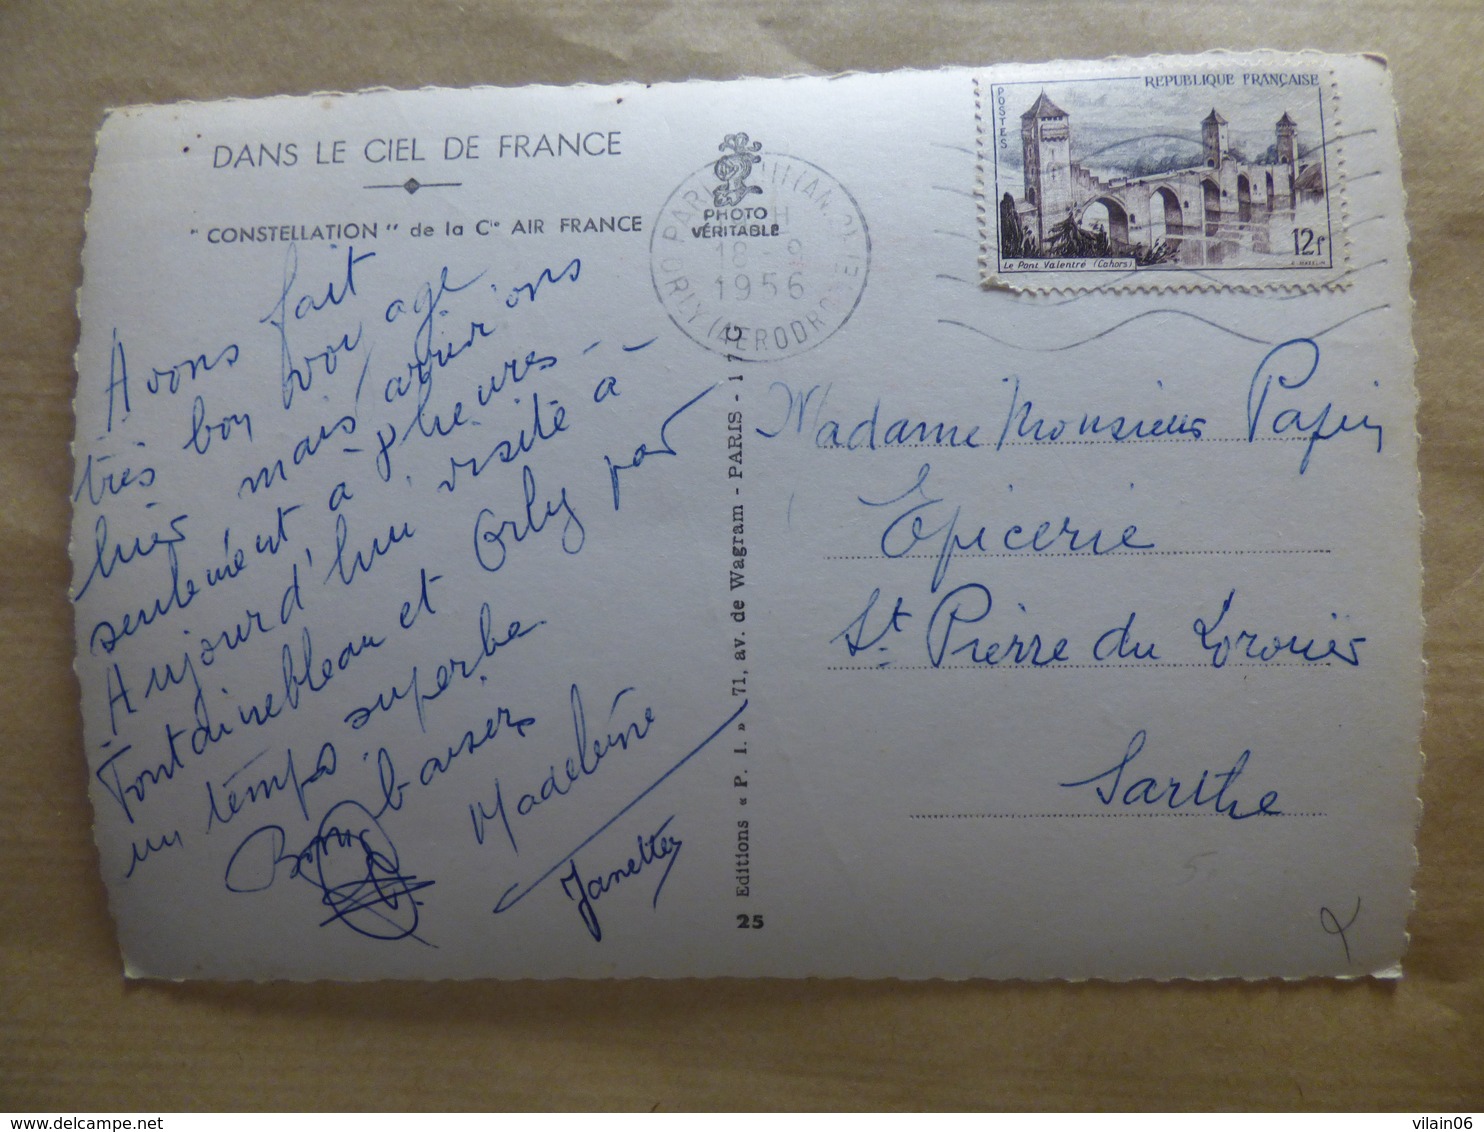 DANS LE CIEL DE FRANCE
" CONSTELLATION " de la Cie AIR FRANCE
PHOTO
VÉRITABLE
18 - 9
1956
ORLY (AERODROME)
REPUBLIQUE FRANÇAISE
POSTES
12f
Le Pont Valentré (Cahors)
Avons fait
très bon voyage
hier mais arrivions
seulement à 9 heures -
Aujourd'hui visité à
Fontainebleau et Orly par
un temps superbe.
Bons baisers
Madeleine
Janette
Editions « P. I. » 71, av. de Wagram - PARIS - 17
25
Madame Monsieur Papin
Epicerie
St. Pierre du Lorouër
Sarthe
vilain06